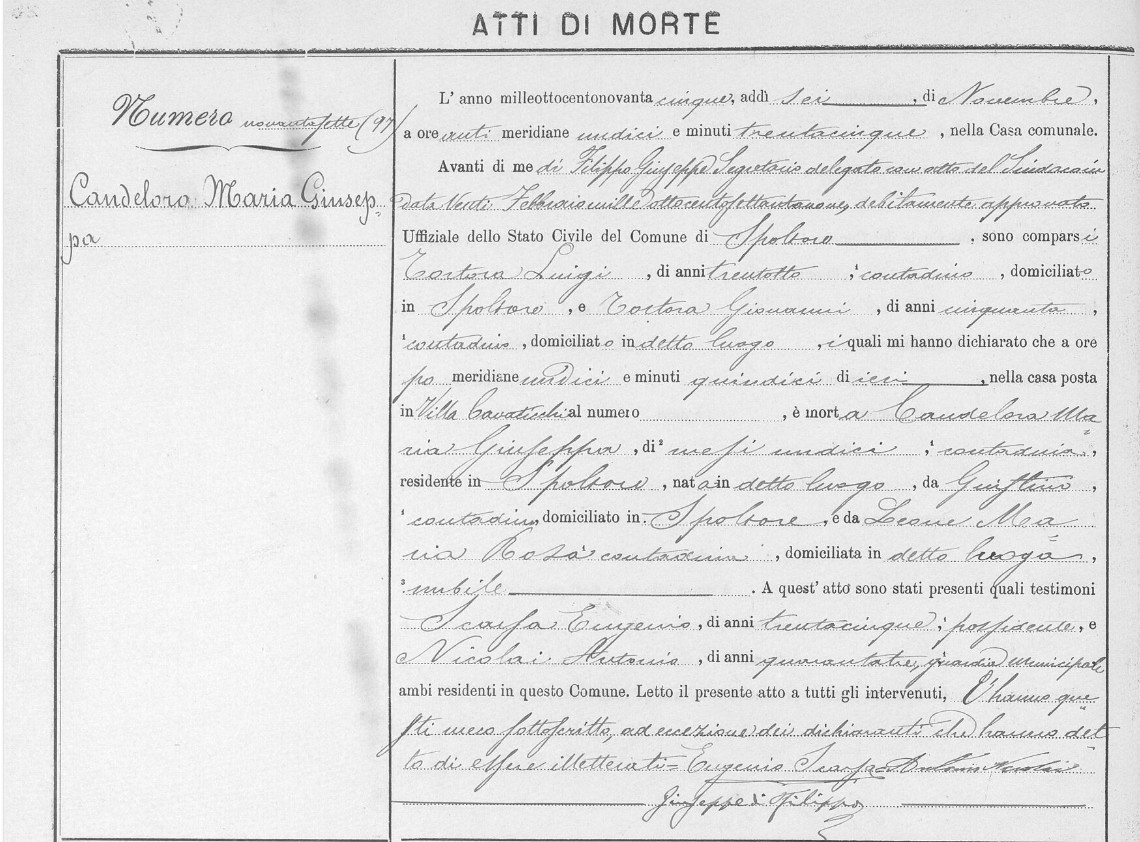 ATTI DI MORTE
Numero novantasette (97)
Candelora Maria Giusep=
pa
L' anno milleottocentonovanta cinque, addì sei, di Novembre,
a ore anti meridiane undici e minuti trentacinque, nella Casa comunale.
Avanti di me di Filippo Giuseppe Segretario delegato con atto del Sindaco in
data Venti Febbraio mille ottocentosettantanove, debitamente approvato
Uffiziale dello Stato Civile del Comune di Spoltore, sono comparsi
Tortora Luigi, di anni trentotto, contadino, domiciliato
in Spoltore, e Tortora Giovanni, di anni cinquanta,
contadino, domiciliato in detto luogo, i quali mi hanno dichiarato che a ore
po meridiane undici e minuti quindici di ieri, nella casa posta
in Villa Cavaticchi al numero, è morta Candelora Ma=
ria Giuseppa, di mesi undici, contadina,
residente in Spoltore, nata in detto luogo, da Giustino,
contadino, domiciliato in Spoltore, e da Leone Ma=
ria Rosa contadina, domiciliata in detto luogo,
nubile. A quest' atto sono stati presenti quali testimoni
Scarfa Eugenio, di anni trentacinque, possidente, e
Nicolai Antonio, di anni quarantatre, guardia municipale
ambi residenti in questo Comune. Letto il presente atto a tutti gli intervenuti, l'hanno que=
sti meco sottoscritto, ad eccezione dei dichiaranti che hanno det=
to di essere illetterati= Eugenio Scarfa= Antonio Nicolai
Giuseppe di Filippo